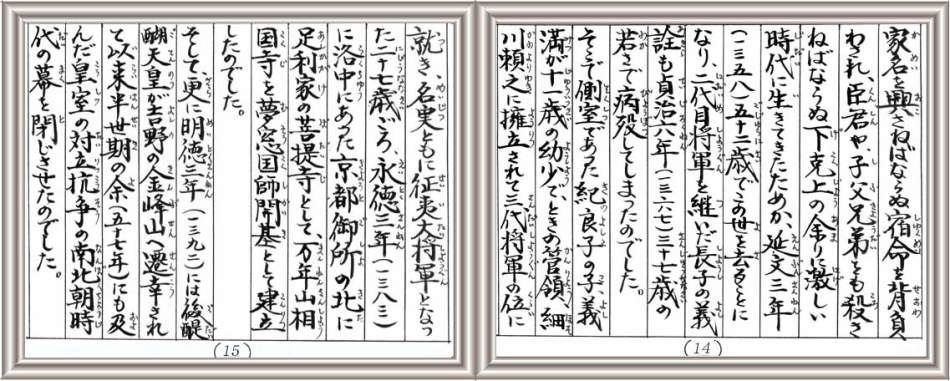 家名を興さねばならぬ宿命を背負
わされ、臣君や、子父兄弟とも殺さ
ねばならぬ下克上の余りに激しい
時代に生きてきたためか、延文三年
(一三五八)五十二歳でこの世を去ることに
なり、二代目将軍を継いだ長子の義
詮も貞治六年(一三六七)三十七歳の
若さで病殁してしまったのでした。
そこで側室であった紀良子の子、義
満が十一歳の幼少で、ときの管領細
川頼之に擁立されて三代将軍の位に
(14)
就き、名実ともに征夷大将軍となっ
た二十七歳ごろ、永徳三年(一三八三)
に洛中にあった京都御所の北に
足利家の菩提寺として、万年山相
国寺を夢窓国師開基として建立
したのでした。
そして更に明徳三年(一三九二)には後醍
醐天皇が吉野の金峰山へ遷幸され
て以来半世期の余(五十七年)にも及
んだ皇室の対立抗争の南北朝時
代の幕を閉じさせたのでした。
(15)